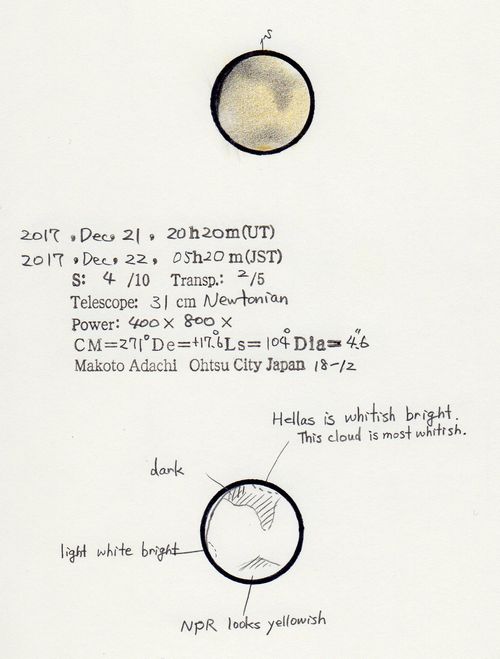 S
2017, Dec, 21, 20h20m(UT)
2017, Dec, 22, 05h20m(JST)
S: 4 /10 Transp.: 2/5
Telescope: 31 cm Newtonian
Power: 400× 800×
CM=271° De=+17.°6 Ls=104° Dia=4."6
Makoto Adachi Ohtsu City Japan 18-12
Hellas is whitish bright.
This cloud is most whitish.
dark
light white bright
NPR looks yellowish